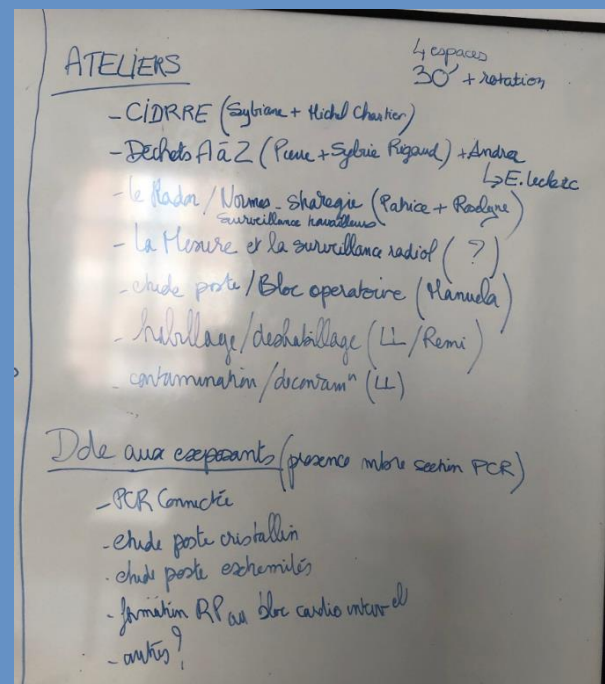 ATELIERS
4 espaces
30' + rotation
- CIDRRE (Sylviane + Michel Chartier)
- Déchets A à Z (Pierre + Sylvie Rigaud) + Andrea
↳ E. leclerc
- le Radon / Normes - (Patrice + Roselyne)
Surveillance travailleurs
- La Mesure et la surveillance radiol (?)
- etude poste / Bloc operatoire (Manuela)
- habillage / deshabillage (LL / Remi)
- contamination / decontamⁿ (LL)
Dde aux exposants (presence mbre section PCR)
- PCR Connectée
- etude poste cristallin
- etude poste extremités
- formation RP au bloc cardio interv el
- autres ?